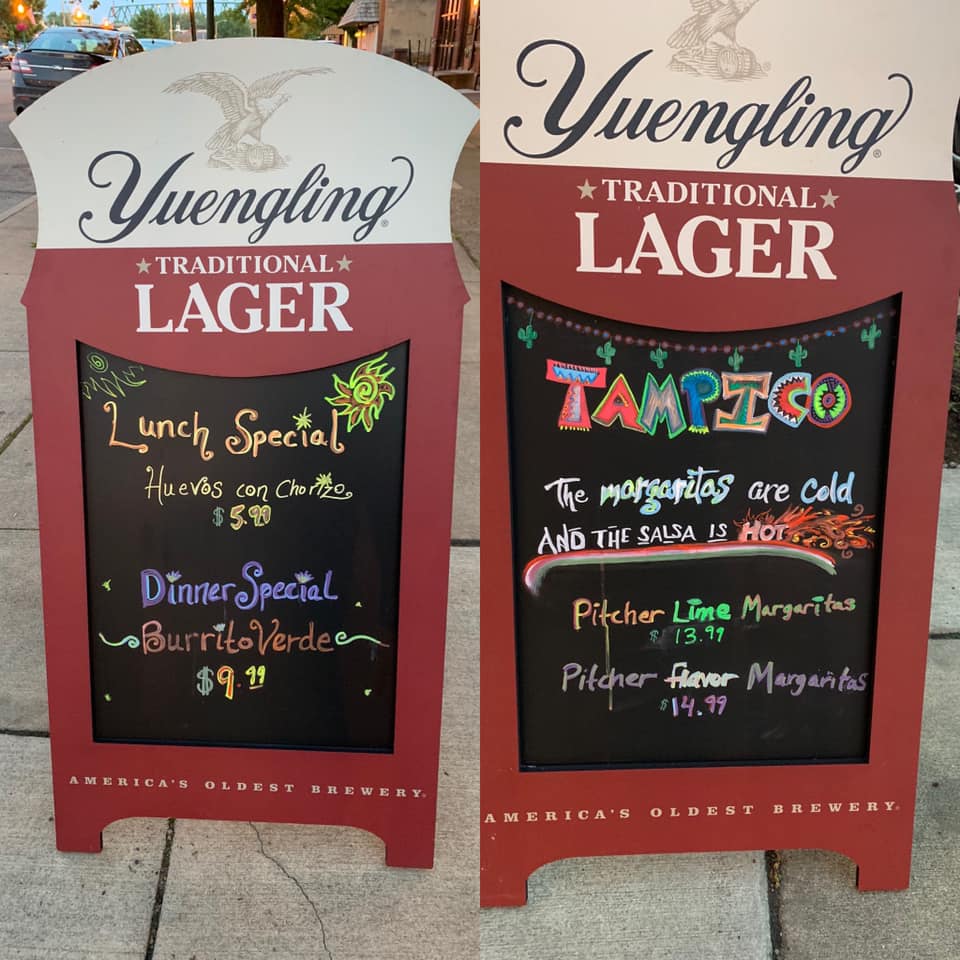 Yuengling®
TRADITIONAL
LAGER
Lunch Special
Huevos con Chorizo
$5.99
Dinner Special
Burrito Verde
$9.99
AMERICA'S OLDEST BREWERY®
Yuengling®
TRADITIONAL
LAGER
TAMPICO
The margaritas are cold
AND THE SALSA IS HOT
Pitcher Lime Margaritas
$13.99
Pitcher Flavor Margaritas
$14.99
AMERICA'S OLDEST BREWERY®